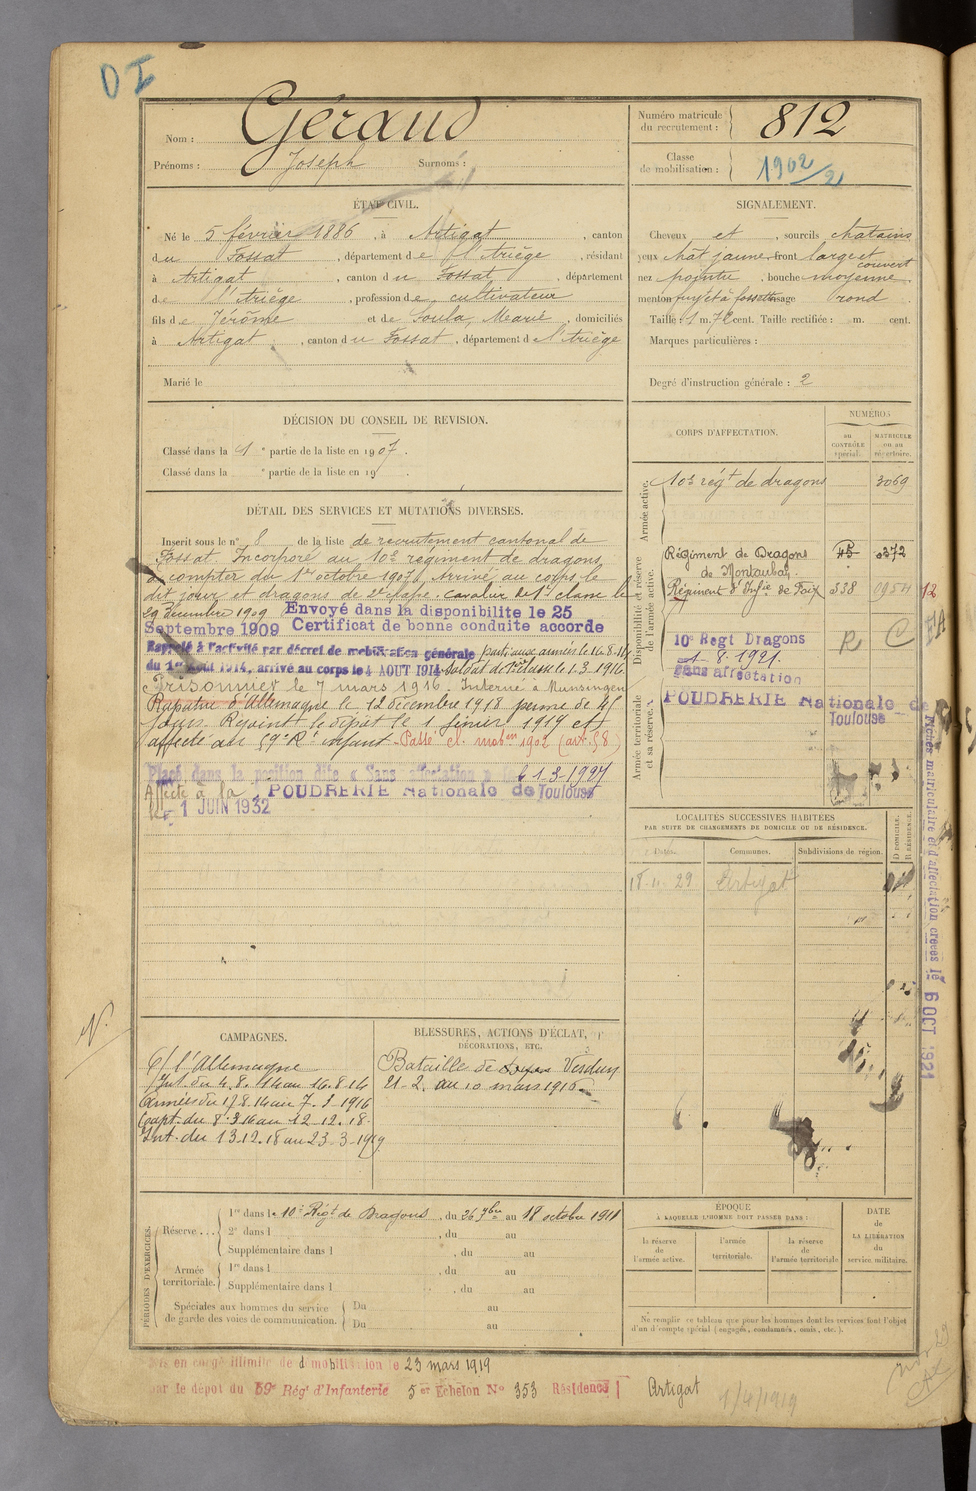 D I
Nom : Géraud
Prénoms : Joseph Surnoms :
Numéro matricule du recrutement : 812
Classe de mobilisation : 1902/2
ÉTAT CIVIL.
Né le 5 février 1886, à Artigat, canton
du Fossat, département de l'Ariège, résidant
à Artigat, canton du Fossat, département
de l'Ariège, profession de cultivateur
fils de Jérôme et de Soula, Marie, domiciliés
à Artigat, canton du Fossat, département de l'Ariège
Marié le
SIGNALEMENT.
Cheveux et, sourcils chatains
yeux chât jaune, front large et couvert
nez pointu, bouche moyenne,
menton à fossette visage rond
Taille : 1 m. cent. Taille rectifiée : m. cent.
Marques particulières :
Degré d'instruction générale : 2
DÉCISION DU CONSEIL DE REVISION.
Classé dans la 1e partie de la liste en 1907.
Classé dans la e partie de la liste en 19 .
DÉTAIL DES SERVICES ET MUTATIONS DIVERSES.
Inscrit sous le n° 8 de la liste de recrutement cantonal de
Fossat. Incorporé au 10e régiment de dragons
à compter du 1er octobre 1907, arrivé au corps le
dit jour et dragons de 2e classe. Cavalier de 1re classe le
29 Décembre 1909 Envoyé dans la disponibilite le 25
Septembre 1909 Certificat de bonne conduite accorde
Rappelé à l'activité par décret de mobilisation générale parti aux armées le 16.8.14
du 1er Août 1914, arrivé au corps le 4 AOUT 1914 soldat de 1re classe le 1.3.1916.
Prisonnier le 7 mars 1916. Interné à Munsingen
Rapatrié d'Allemagne le 12 décembre 1918 perme de 45
jours. Rejoint le dépôt le 1 février 1919 et
affecté au 59e Rt infant. Passé cl. mobon 1902 (art. 58)
Placé dans la position dite « Sans affectation » le 1-3-1927
Affecté à la POUDRERIE Nationale de Toulouse
le 1 JUIN 1932
CORPS D'AFFECTATION.
NUMÉROS
au CONTRÔLE spécial.
MATRICULE ou au répertoire.
Armée active.
10e régt de dragons 3069
Disponibilité et réserve de l'armée active.
Régiment de Dragons 45 0372
de Montauban.
Régiment d'Infie de Foix 538 0954
10e Regt Dragons R C
1-8-1921.
Sans affectation
Armée territoriale et sa réserve.
POUDRERIE Nationale de
Toulouse
LOCALITÉS SUCCESSIVES HABITÉES
PAR SUITE DE CHANGEMENTS DE DOMICILE OU DE RÉSIDENCE.
Dates. Communes. Subdivisions de région. D DOMICILE. R RÉSIDENCE.
18-11-29 Artigat
Fiches matriculaire et d'affectation créées le 6 OCT 1921
N.
CAMPAGNES.
C/ l'Allemagne
Int. du 4.8.14 au 16.8.14
Armées du 17.8.14 au 7.3.1916
Capt. du 8.3.16 au 12.12.18
Int. du 13.12.18 au 23-3-1919
BLESSURES, ACTIONS D'ÉCLAT,
DÉCORATIONS, ETC.
Bataille de Verdun
21-2 au 10 mars 1916
PÉRIODES D'EXERCICES.
Réserve ... 1re dans le 10e Régt de Dragons, du 26 7bre au 18 octobre 1911
2e dans l , du au
Supplémentaire dans l , du au
Armée territoriale. 1re dans l , du au
Supplémentaire dans l , du au
Spéciales aux hommes du service de garde des voies de communication. Du au
Du au
ÉPOQUE
À LAQUELLE L'HOMME DOIT PASSER DANS :
la réserve de l'armée active.
l'armée territoriale.
la réserve de l'armée territoriale
DATE de LA LIBÉRATION du service militaire.
Ne remplir ce tableau que pour les hommes dont les services font l'objet
d'un décompte spécial (engagés, condamnés, omis, etc.).
en congé illimité de démobilisation le 23 mars 1919
par le dépot du 59e Régt d'Infanterie 5er Echelon N° 353 Résidence Artigat
1/4/1919